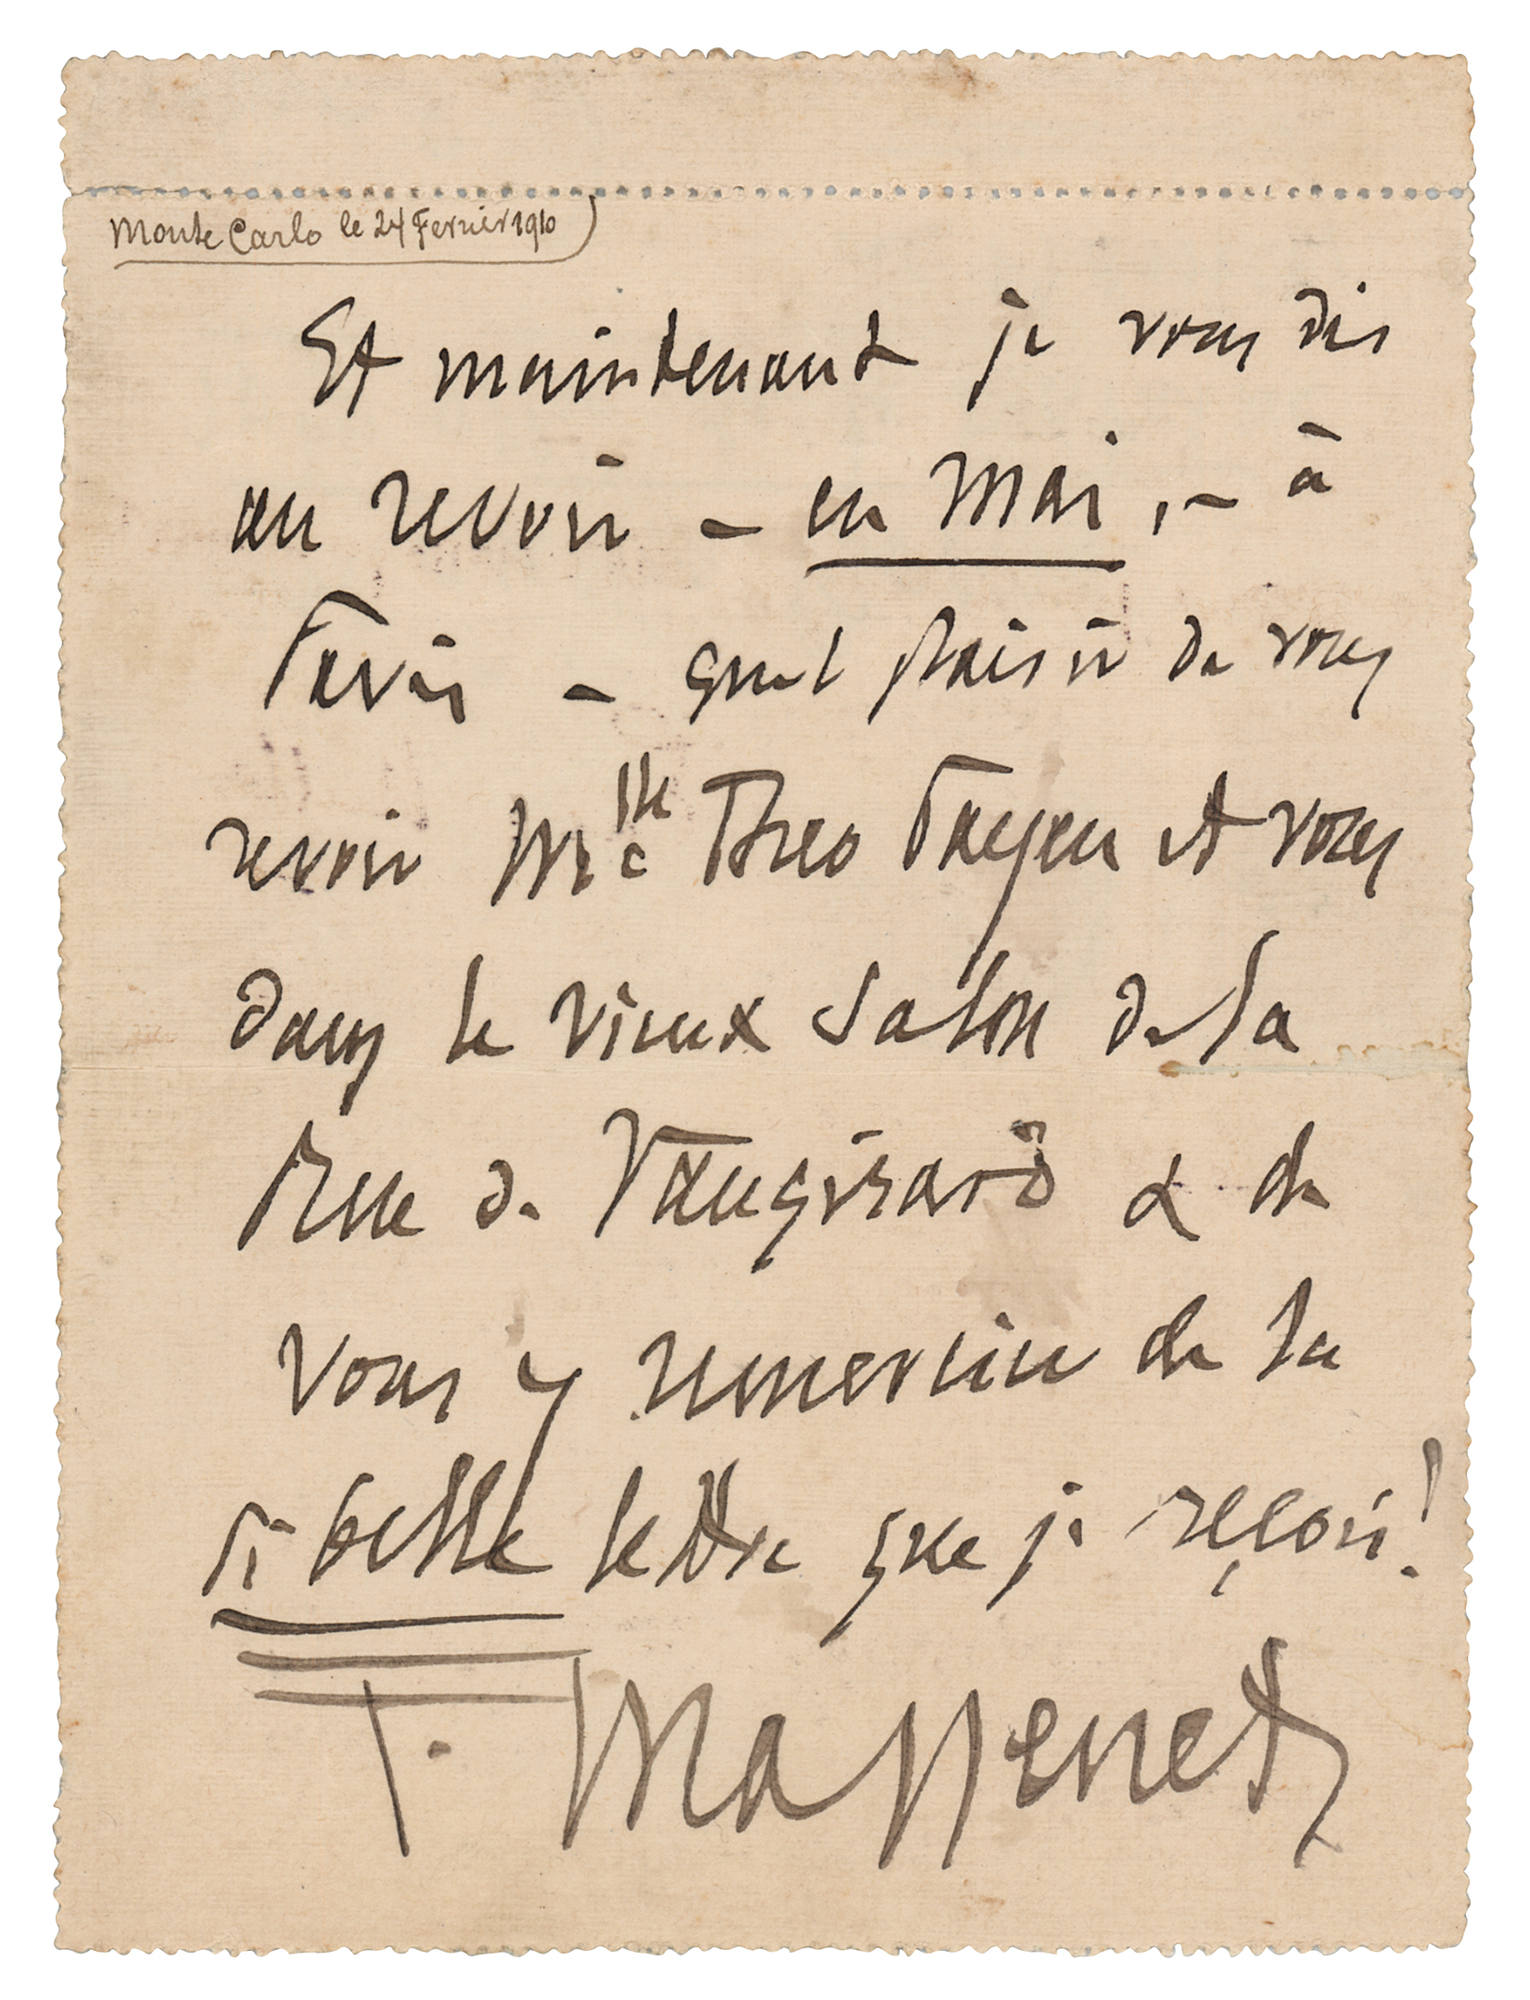 Monte Carlo le 24 Fevrier 1910
Et maintenant je vous dis
au revoir – en Mai, – à
Paris – quel plaisir de vous
revoir Melle Theo Payen et vous
dans le vieux salon de la
Rue de Vaugirard & de
vous y remercier de la
si belle lettre que je reçois!
J. Massenet